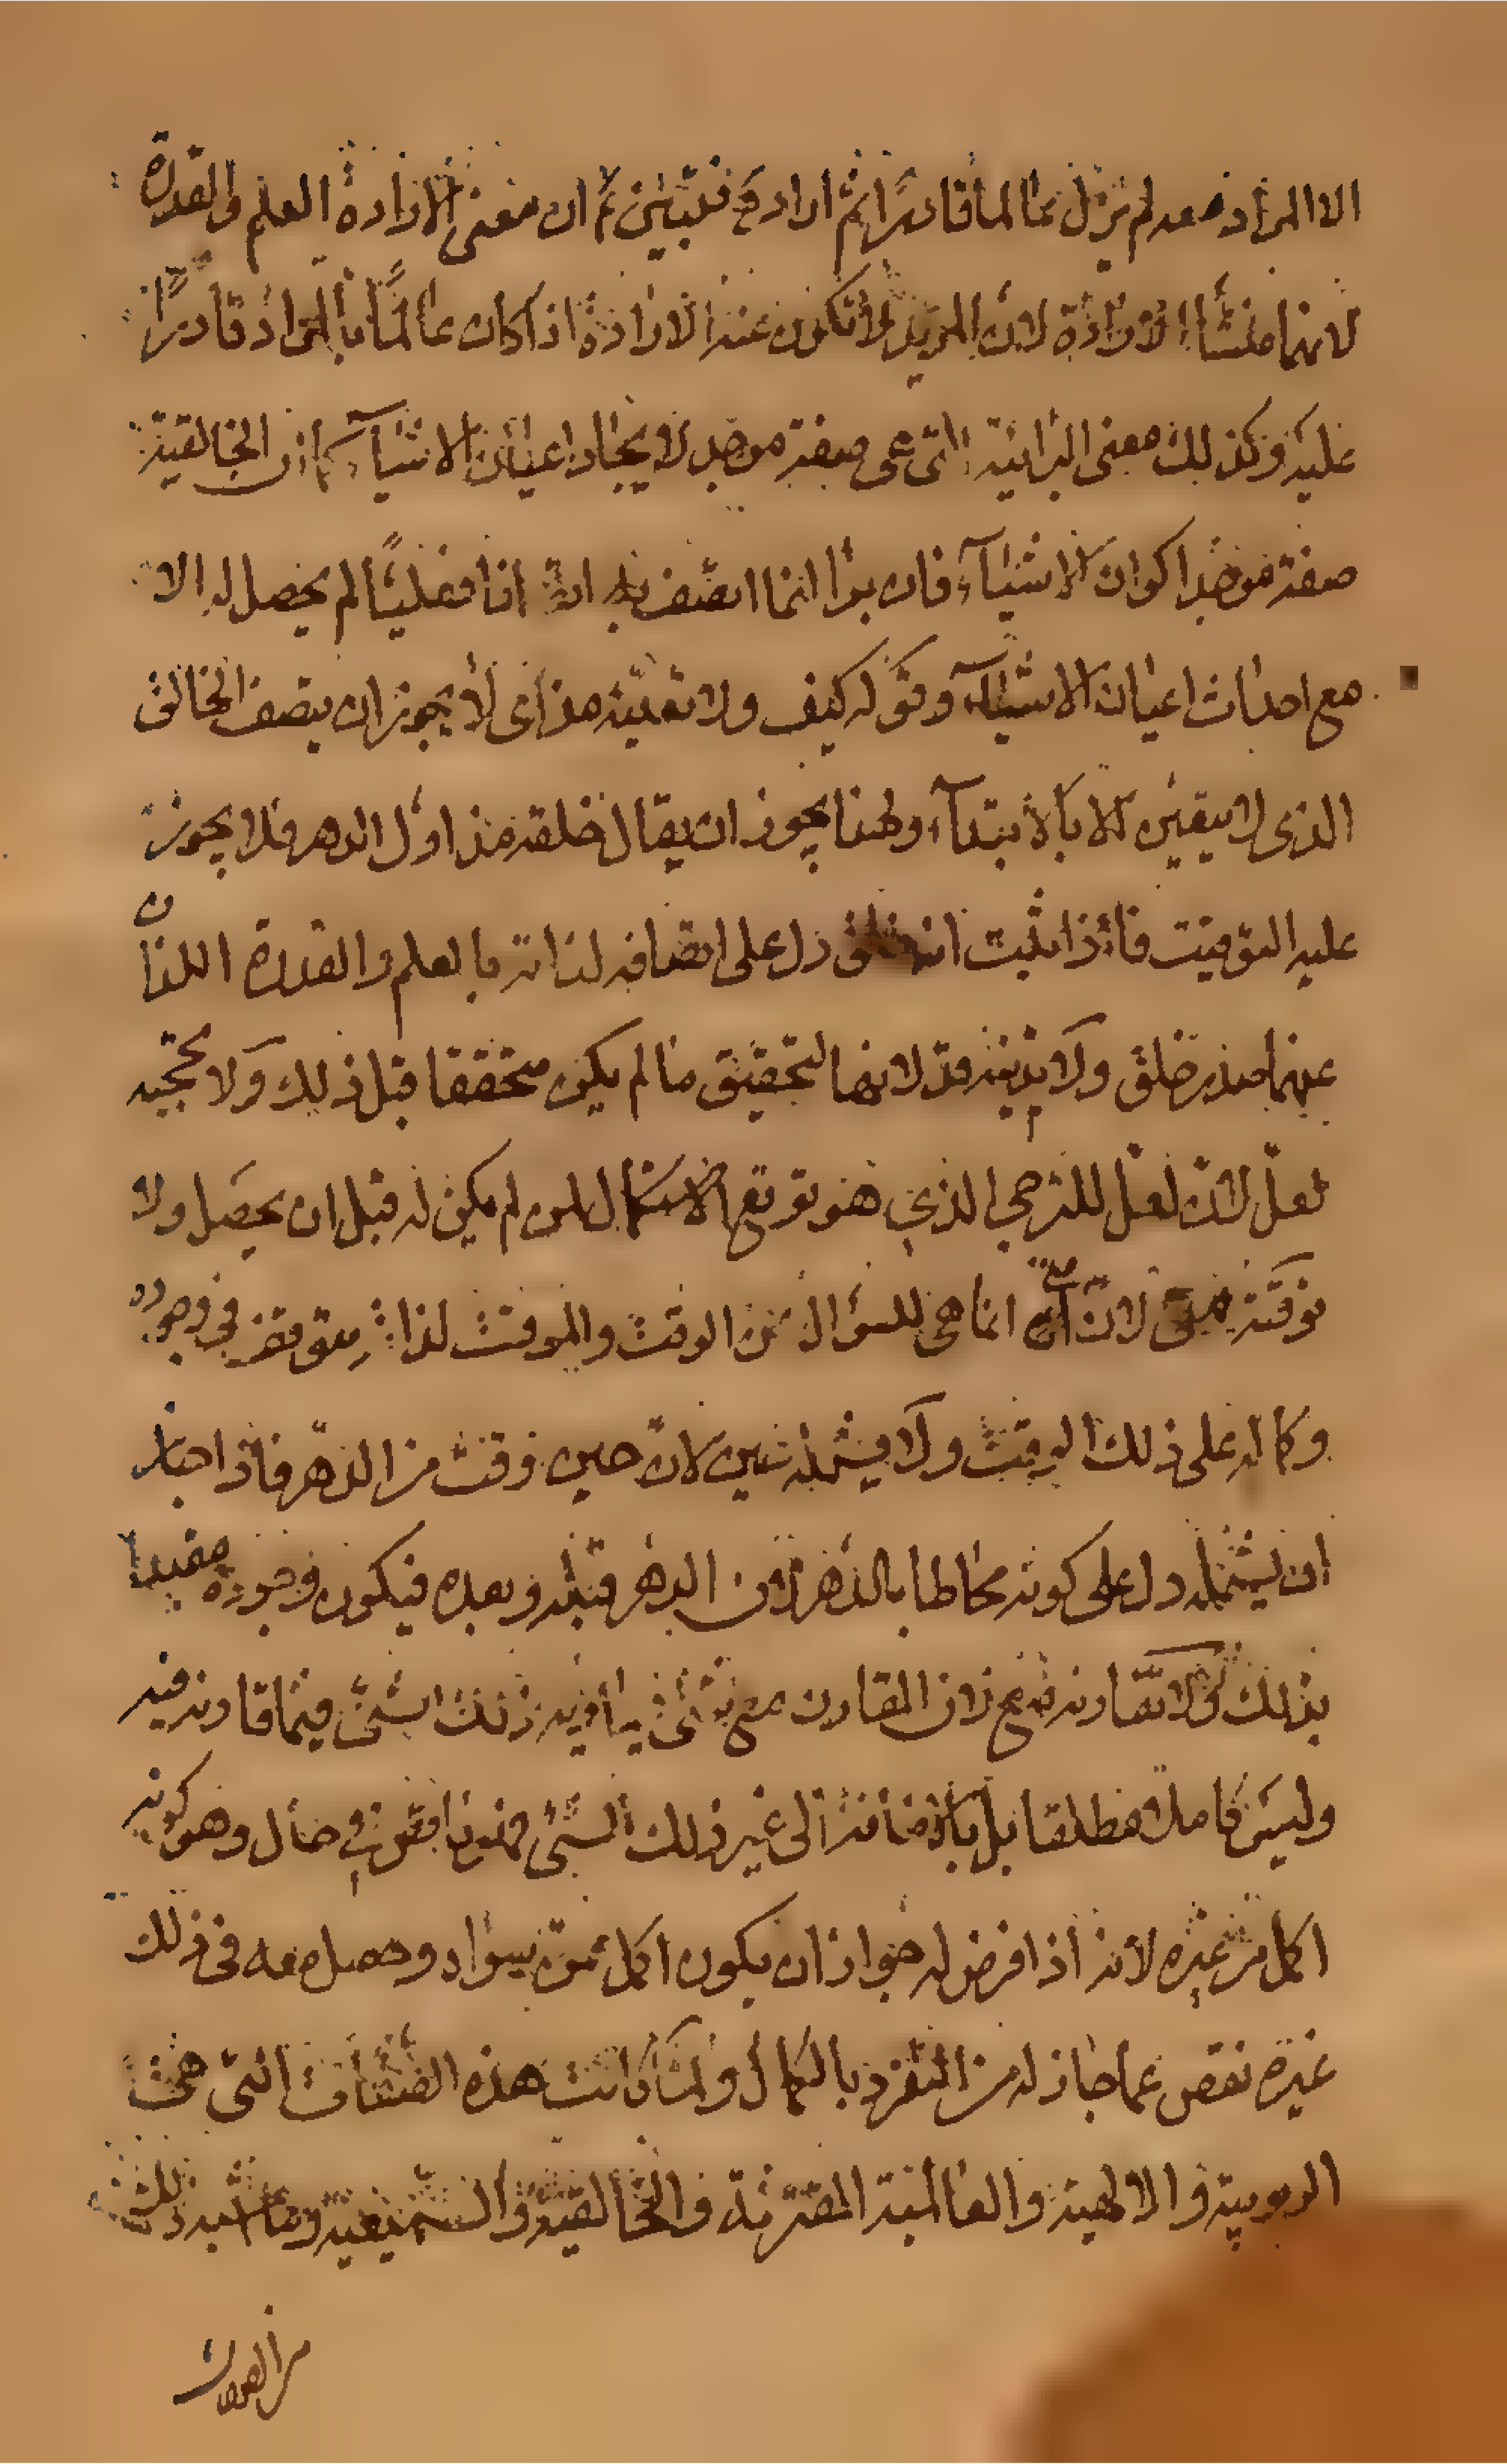 الا المراد معه لم يزل عالما قادرا ثم اراد فتبين ان معنى الارادة العلم والقدرة
لانهما منشأ الارادة لان المريد لا تكون عند الارادة اذا كان عالما بالمراد قادرا
عليه وكذلك معنى البرائية التى هى صفة موجد لايجاد اعيان الاشيآء كما ان الخالقية
صفة موجد اكوان الاشيآء فان برأ انما اتصف به اتصافا فعليا لم يحصل له الا
مع احداث اعيان الاشيآء وقوله كيف ولا تغيبه مذ اى لا يجوز ان يتصف الخالق
الذى لا يتعين الا بالابتدآء ولهذا يجوز ان يقال خلقه مذ اول الدهر فلا يجوز
عليه التوقيت فاذا ثبت انه خلق دل على اتصافه لذاته بالعلم والقدرة اللذان
عنهما صدر خلق ولا تدنيه قد لانها لتحقيق ما لم يكن متحققا قبل ذلك ولا تحجبه
لعل لان لعل للترجي الذي هو توقع الاستكمال لمن لم يكن له قبل ان يحصل ولا
توقته متى لان متى انما هى للسؤال عن الوقت والموقت لذاته متوقف في وجوده
وكماله على ذلك الوقت ولا يشمله حين لان حين وقت من الدهر فاذا جاز
ان يشمله دل على كونه محاطا بالدهر لان الدهر قبله وبعده فيكون وجوده مقيدا
بذلك ولا تقارنه مع لان المقارن مع شئ ذلك الشئ فيما قارنه فيه
وليس كاملا مطلقا بل بالاضافة الى غير ذلك الشئ فهو ناقص في حال وهو كونه
اكمل من غيره لانه اذا فرض له جواز ان يكون اكمل ممن سواه وحصل معه فى ذلك
غيره نقص عما جاز له من التفرد بالكمال ولما كانت هذه الصفات التى هى
الربوبية والالهية والعالمية المقترنة والخالقية والسميعية وما اشبه ذلك
من الصفات